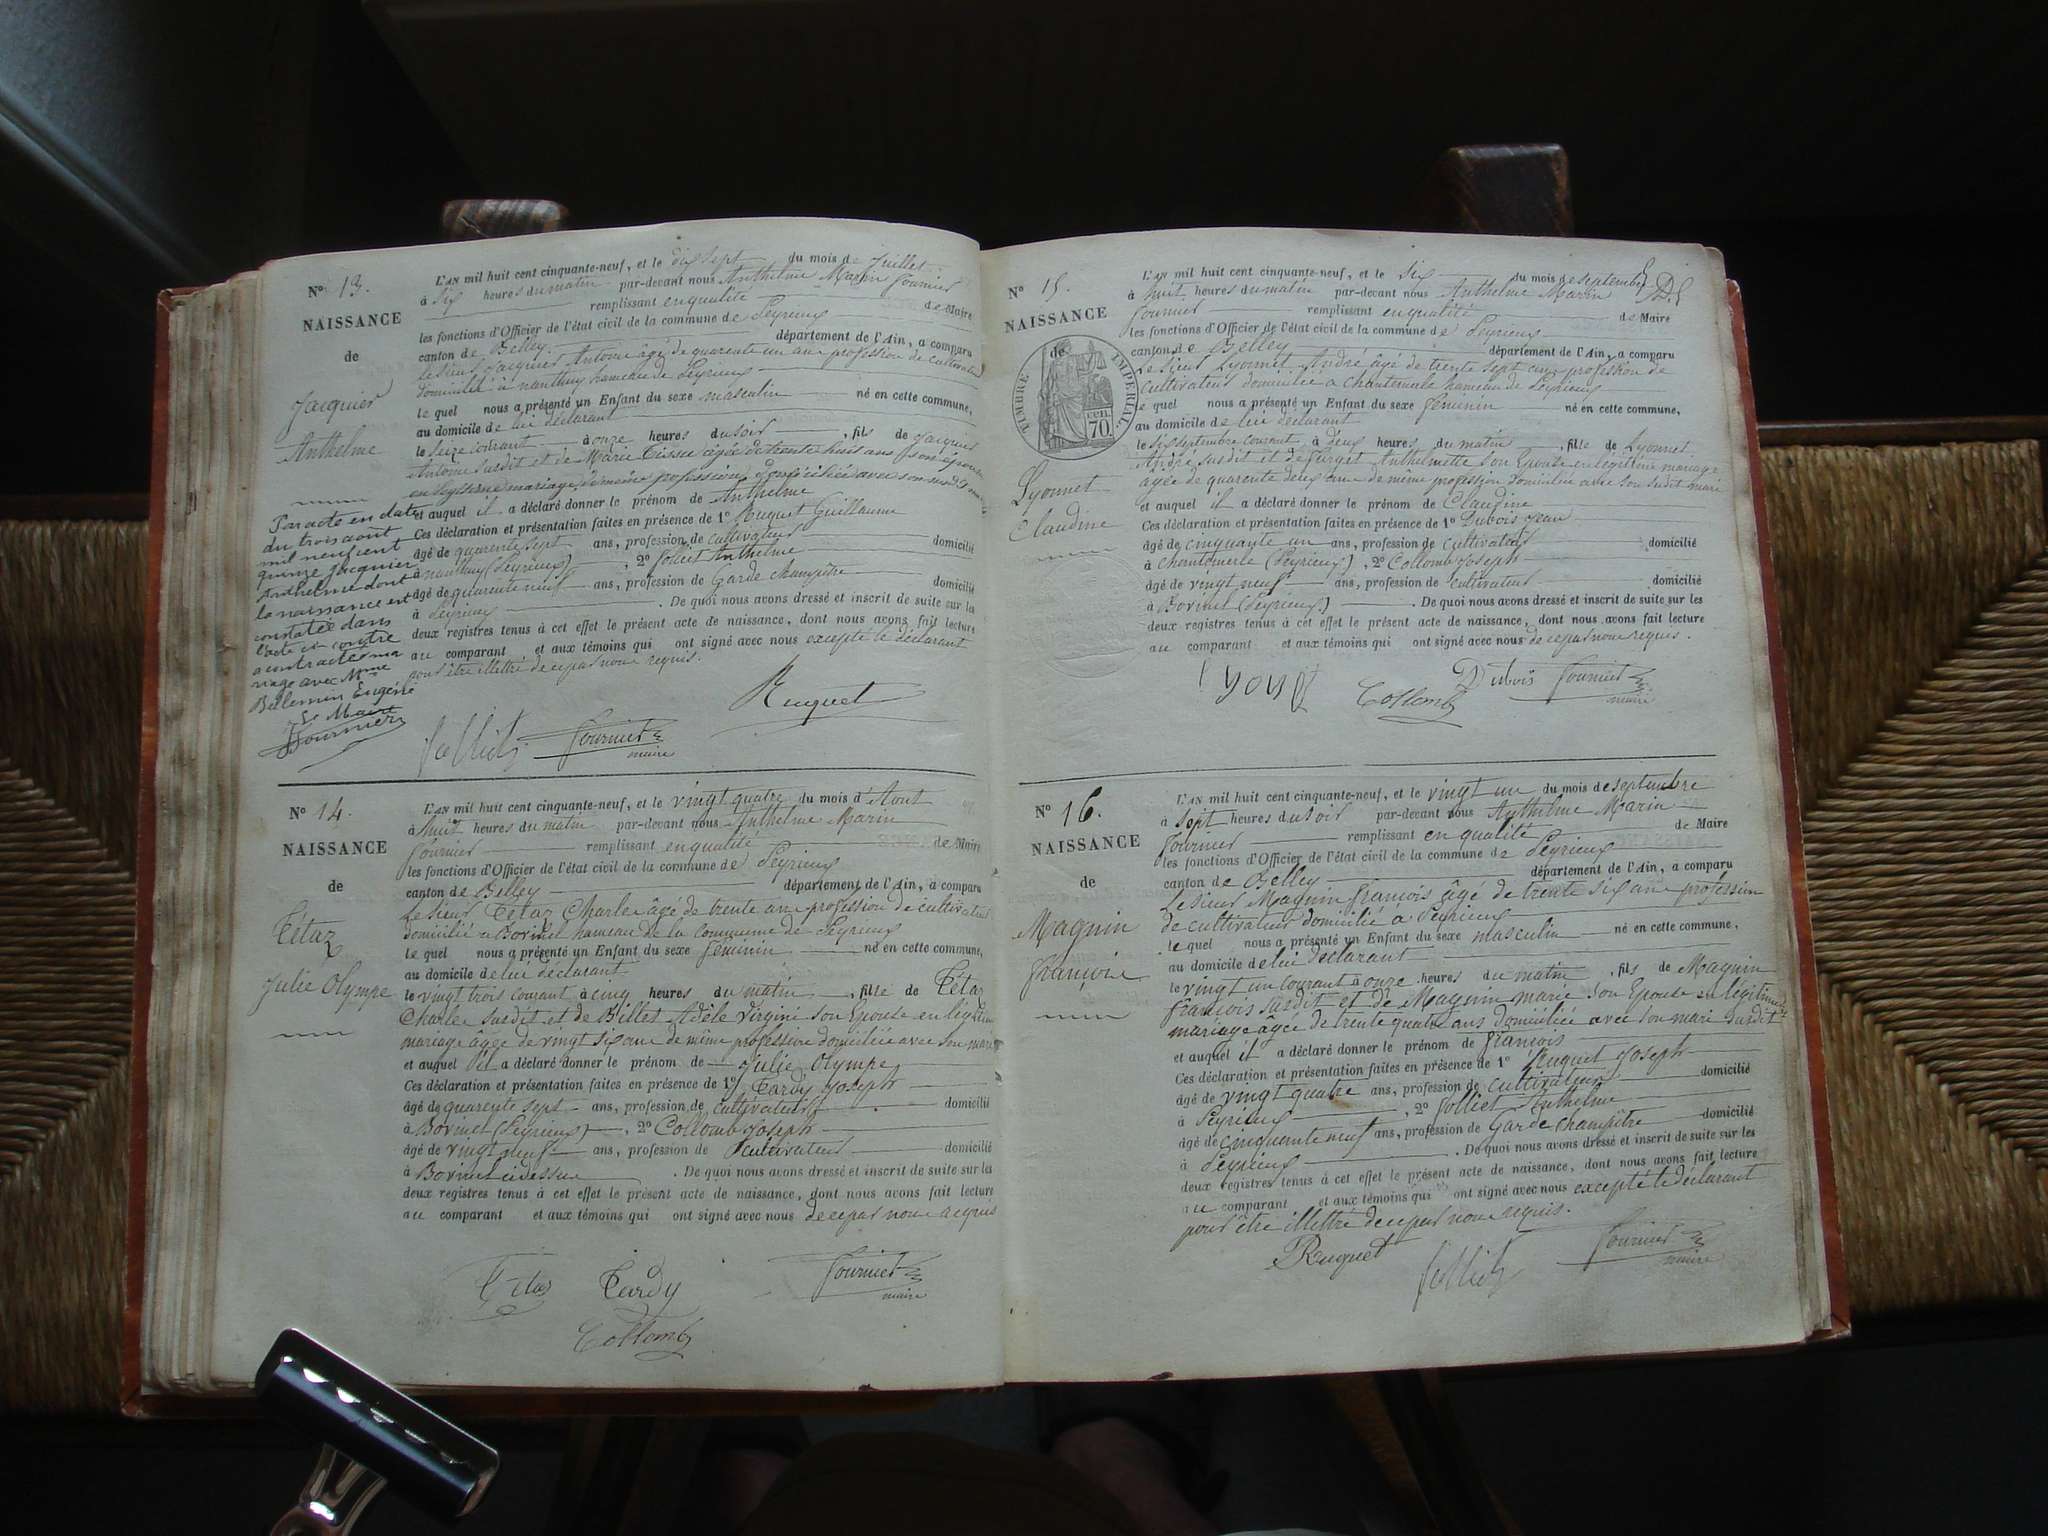 N° 13.
NAISSANCE
de
Jacquier
Anthelme
L'AN mil huit cent cinquante-neuf, et le dix sept du mois de Juillet
à six heures du matin par-devant nous Anthelme Marin Fournier
remplissant en qualité de Maire
les fonctions d'Officier de l'état civil de la commune de Peyrieux
canton de Belley département de l'Ain, a comparu
Le sieur Jacquier Antoine âgé de quarente un ans profession de cultivateur
domicilié à nanthuy hameau de Peyrieux
le quel nous a présenté un Enfant du sexe masculin né en cette commune,
au domicile de lui déclarant
le seize courant à onze heures du soir, fils de Jacquier
Antoine susdit et de Marie Tissu âgée de trente huit ans son épouse
en légitime mariage, de même profession domiciliée avec son mari
et auquel il a déclaré donner le prénom de Anthelme
Ces déclaration et présentation faites en présence de 1° Ruquet Guillaume
âgé de quarente sept ans, profession de cultivateur domicilié
à nanthuy (Peyrieux), 2° Jolliet Anthelme
âgé de quarente neuf ans, profession de Garde champêtre domicilié
à Peyrieux. De quoi nous avons dressé et inscrit de suite sur la
deux registres tenus à cet effet le présent acte de naissance, dont nous avons fait lecture
au comparant et aux témoins qui ont signé avec nous excepté le déclarant
pour être illettré de ce par nous requis.
Par acte en date
du trois aout
mil neuf cent
quinze Jacquier
Anthelme dont
la naissance est
constatée dans
l'acte ci contre
a contracté ma
riage avec Mme
Bellemin Eugénie
Le Maire
Fournier
Ruquet
Jolliet Fournier
maire
N° 14.
NAISSANCE
de
Tétaz
Julie Olympe
L'AN mil huit cent cinquante-neuf, et le vingt quatre du mois d'Aout
à huit heures du matin par-devant nous Anthelme Marin
Fournier remplissant en qualité de Maire
les fonctions d'Officier de l'état civil de la commune de Peyrieux
canton de Belley département de l'Ain, a comparu
Le sieur Tétaz Charle âgé de trente ans profession de cultivateur
domicilié a Borinet hameau de la Commune de Peyrieux
le quel nous a présenté un Enfant du sexe féminin né en cette commune,
au domicile de lui déclarant
le vingt trois courant à cinq heures du matin, fille de Tétaz
Charle susdit et de Billet Adèle Virginie son Epouse en légitime
mariage âgée de vingt six ans de même profession domiciliée avec son mari
et auquel il a déclaré donner le prénom de Julie Olympe
Ces déclaration et présentation faites en présence de 1° Tardy Joseph
âgé de quarente sept ans, profession de cultivateur domicilié
à Borinet (Peyrieux), 2° Collomb Joseph
âgé de vingt neuf ans, profession de cultivateur domicilié
à Borinet ci dessus. De quoi nous avons dressé et inscrit de suite sur la
deux registres tenus à cet effet le présent acte de naissance, dont nous avons fait lecture
au comparant et aux témoins qui ont signé avec nous de ce par nous requis
Tétaz Tardy Fournier
maire
Collomb
N° 15.
NAISSANCE
de
TIMBRE IMPÉRIAL
70 cen.
Lyonnet
Claudine
L'AN mil huit cent cinquante-neuf, et le six du mois de septembre
à huit heures du matin par-devant nous Anthelme Marin
Fournier remplissant en qualité de Maire
les fonctions d'Officier de l'état civil de la commune de Peyrieux
canton de Belley département de l'Ain, a comparu
Le sieur Lyonnet André âgé de trente sept ans profession de
cultivateur domicilié a Chantemerle hameau de Peyrieux
le quel nous a présenté un Enfant du sexe féminin né en cette commune,
au domicile de lui déclarant
le six septembre courant à deux heures du matin, fille de Lyonnet
André susdit et de Furget Anthelmette son Epouse en légitime mariage
âgée de quarente deux ans de même profession domiciliée avec son susdit mari
et auquel il a déclaré donner le prénom de Claudine
Ces déclaration et présentation faites en présence de 1° Dubois Jean
âgé de cinquante un ans, profession de cultivateur domicilié
à Chantemerle (Peyrieux), 2° Collomb Joseph
âgé de vingt neuf ans, profession de cultivateur domicilié
à Borinet (Peyrieux). De quoi nous avons dressé et inscrit de suite sur les
deux registres tenus à cet effet le présent acte de naissance, dont nous avons fait lecture
au comparant et aux témoins qui ont signé avec nous de ce par nous requis.
Dubois Fournier
Collomb maire
N° 16.
NAISSANCE
de
Magnin
François
L'AN mil huit cent cinquante-neuf, et le vingt un du mois de septembre
à sept heures du soir par-devant nous Anthelme Marin
Fournier remplissant en qualité de Maire
les fonctions d'Officier de l'état civil de la commune de Peyrieux
canton de Belley département de l'Ain, a comparu
Le sieur Magnin françois âgé de trente six ans profession
de cultivateur domicilié a Peyrieux
le quel nous a présenté un Enfant du sexe masculin né en cette commune,
au domicile de lui déclarant
le vingt un courant à onze heures du matin, fils de Magnin
françois susdit et de Magnin marie son Epouse en légitime
mariage âgée de trente quatre ans domiciliée avec son mari susdit
et auquel il a déclaré donner le prénom de françois
Ces déclaration et présentation faites en présence de 1° Ruquet Joseph
âgé de vingt quatre ans, profession de cultivateur domicilié
à Peyrieux, 2° Jolliet Anthelme
âgé de cinquante neuf ans, profession de Garde champêtre domicilié
à Peyrieux. De quoi nous avons dressé et inscrit de suite sur les
deux registres tenus à cet effet le présent acte de naissance, dont nous avons fait lecture
au comparant et aux témoins qui ont signé avec nous excepté le déclarant
pour être illettré de ce par nous requis.
Ruquet Jolliet Fournier
maire